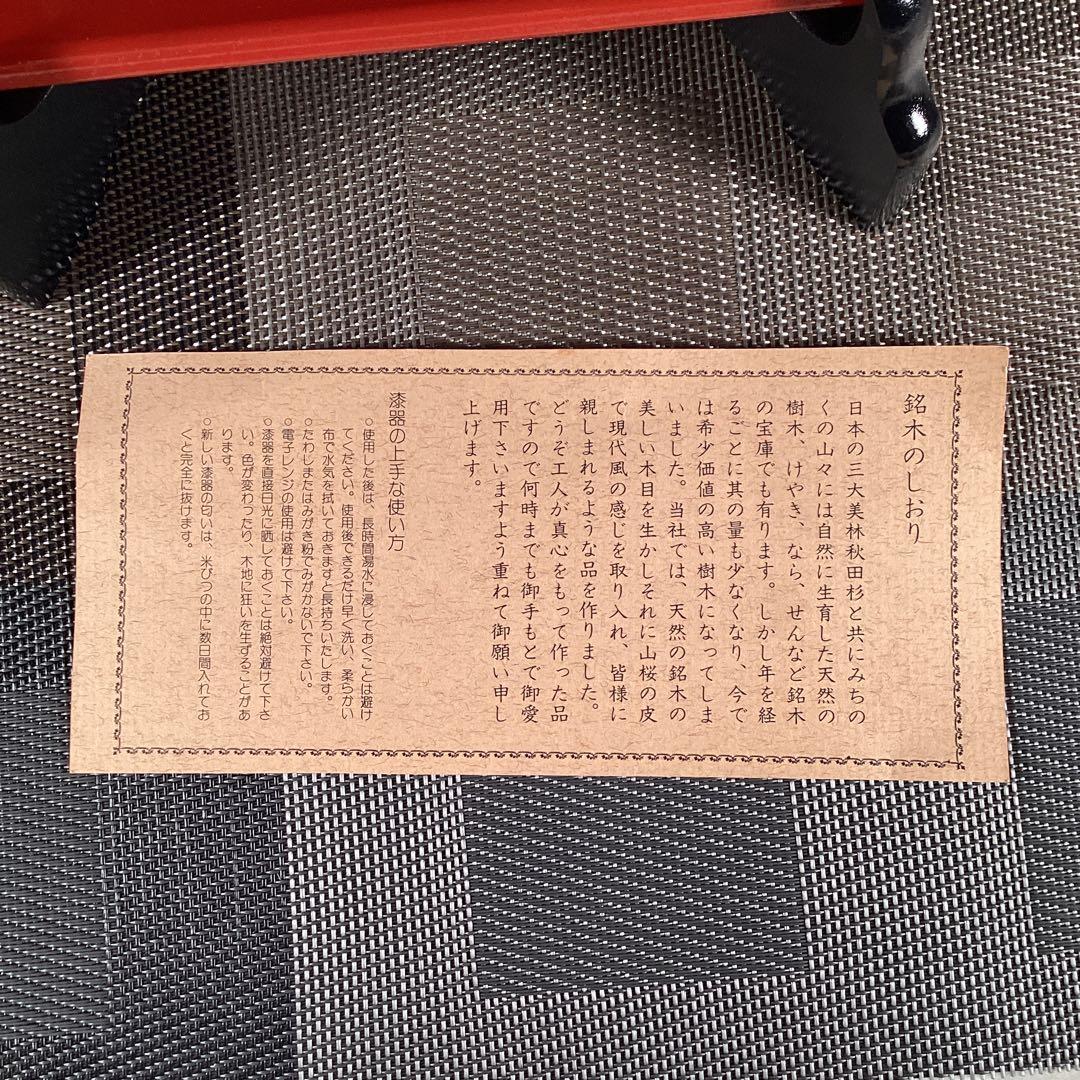 銘木のしおり
日本の三大美林秋田杉と共にみちの
くの山々には自然に生育した天然の
樹木、けやき、なら、せんなど銘木
の宝庫でも有ります。しかし年を経
るごとに其の量も少なくなり、今で
は希少価値の高い樹木になってしま
いました。当社では、天然の銘木の
美しい木目を生かしそれに山桜の皮
で現代風の感じを取り入れ、皆様に
親しまれるような品を作りました。
どうぞ工人が真心をもって作った品
ですので何時までも御手もとで御愛
用下さいますよう重ねて御願い申し
上げます。
漆器の上手な使い方
○使用した後は、長時間湯水に浸しておくことは避け
てください。使用後できるだけ早く洗い、柔らかい
布で水気を拭いておきますと長持ちいたします。
○たわしまたはみがき粉でみがかないで下さい。
○電子レンジの使用は避けて下さい。
○漆器を直接日光に晒しておくことは絶対避けて下さ
い。色が変わったり、木地に狂いを生ずることがあ
ります。
○新しい漆器の匂いは、米びつの中に数日間入れてお
くと完全に抜けます。